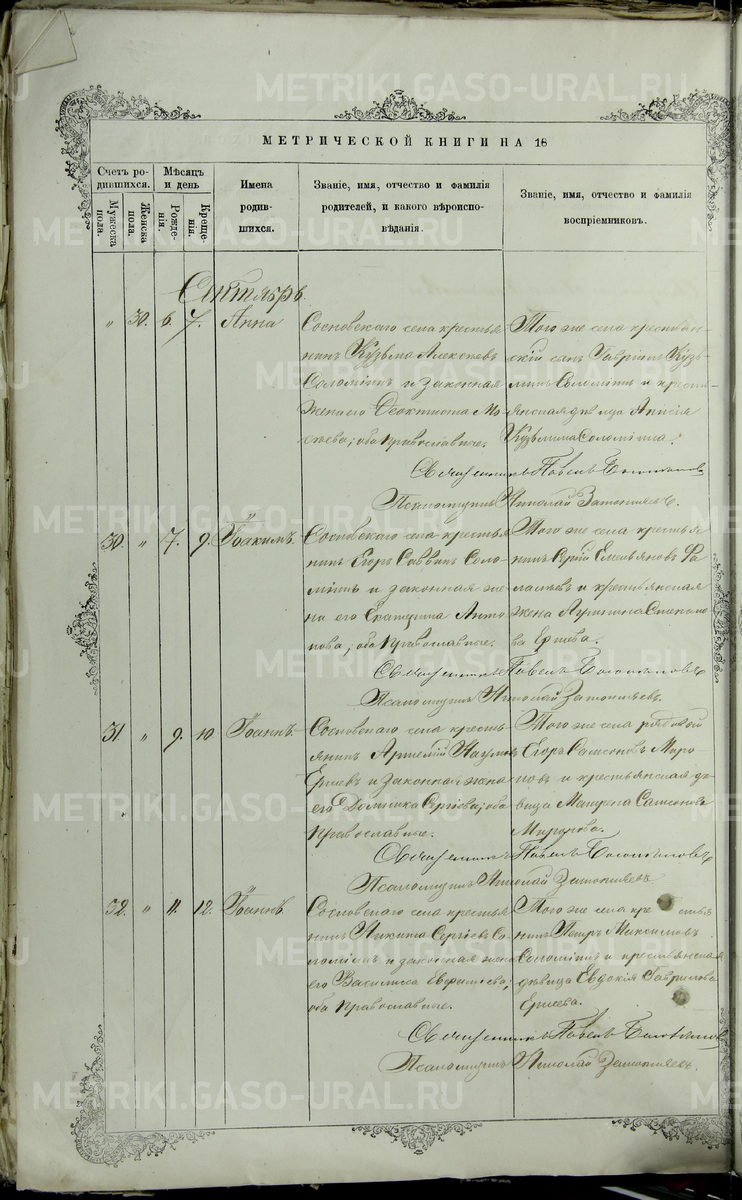 МЕТРИЧЕСКОЙ КНИГИ НА 18
Счетъ родившихся.
Мужеска пола.
Женска пола.
Мѣсяцъ и день
Рожденія.
Крещенія.
Имена родившихся.
Званіе, имя, отчество и фамилія родителей, и какого вѣроисповѣданія.
Званіе, имя, отчество и фамилія воспріемниковъ.
Сентябрь
„ 30. 6. 7. Анна
Сосновскаго села крестья
нинъ Кузьма Алексѣевъ
Соломѣинъ и законная
жена его Феоктиста
оба православные.
Того же села крестьян
скій сынъ Гавріилъ Кузь
минъ Соломѣинъ и кресть
янская дѣвица Анисія
Кузьмина Соломѣина.
Священникъ Павелъ
Псаломщикъ Николай
30. „ 7. 9. Іоакимъ
Сосновскаго села крестья
нинъ Егоръ Саввинъ Соло
мѣинъ и законная же
на его Екатерина Анто
нова, оба православные.
Того же села крестья
нинъ Сергій Емельяновъ
и крестьянская
жена Степано
ва Ершева.
Священникъ Павелъ
Псаломщикъ Николай
31. „ 9. 10. Іоаннъ
Сосновскаго села кресть
янинъ Артемій Наумовъ
Ершевъ и законная жена
его Домника Сергіева, оба
православные.
Того же села рядовой
Егоръ Самсоновъ Миро
новъ и крестьянская дѣ
вица Матрена Самсонова
Миронова.
Священникъ Павелъ
Псаломщикъ Николай
32. „ 11. 12. Іоаннъ
Сосновскаго села крестья
нинъ Никита Сергіевъ Со
ломѣинъ и законная жена
его Василиса Евфиміева,
оба православные.
Того же села крестья
нинъ Петръ Максимовъ
Соломѣинъ и крестьянская
дѣвица Евдокія Гаврилова
Ершева.
Священникъ Павелъ
Псаломщикъ Николай
METRIKI.GASO-URAL.RU